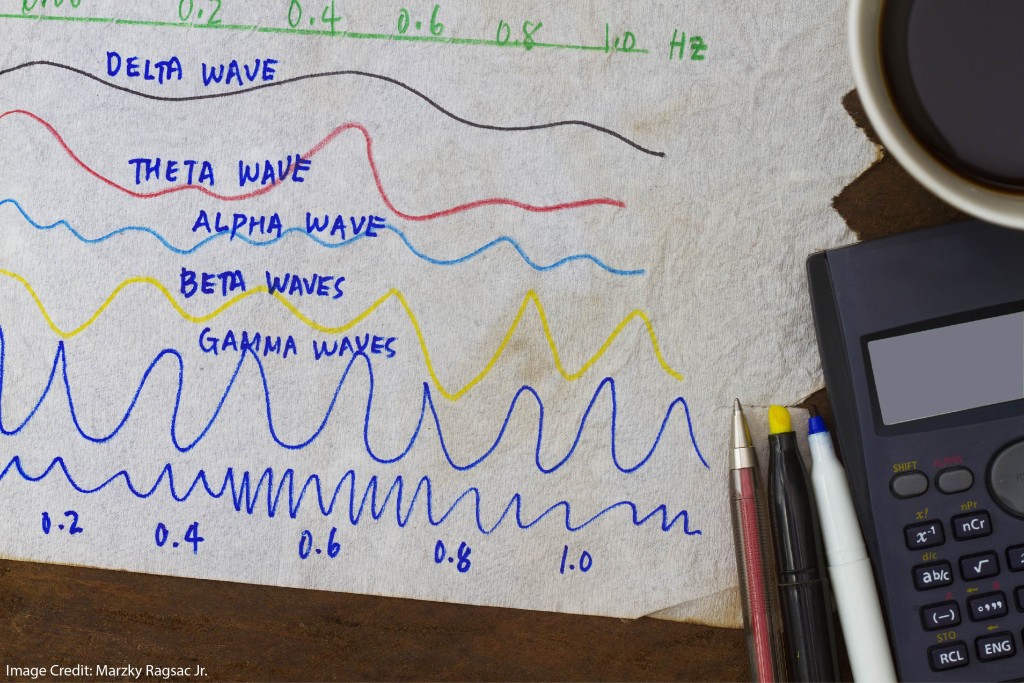 0.00 0.2 0.4 0.6 0.8 1.0 Hz
DELTA WAVE
THETA WAVE
ALPHA WAVE
BETA WAVES
GAMMA WAVES
0.2 0.4 0.6 0.8 1.0
SHIFT ALPHA
x! nPr
x⁻¹ nCr
d/c
ab/c √
(−) °’”
STO
RCL ENG
Image Credit: Marzky Ragsac Jr.